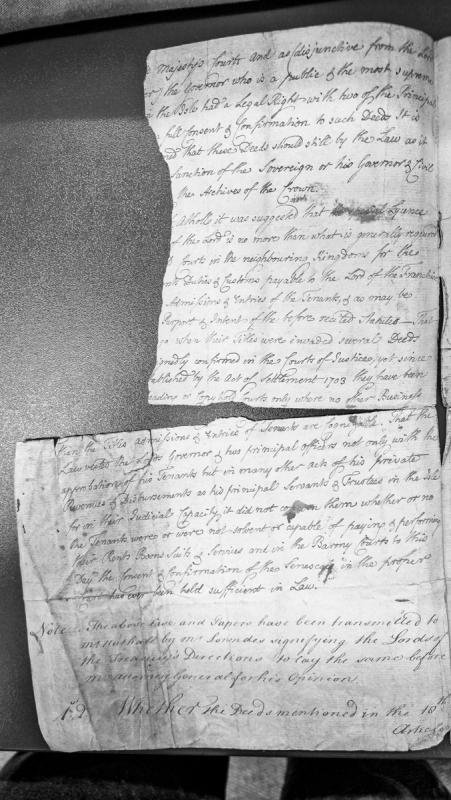 Majestys Courts and as (disjunctive from the Lord
the Governor who is a publie & the most supreme
the Isle had a Legal Right with two of the Principal
full Consent & Confirmation to such Deeds It is
that these Deeds should still by the Law as it
Sanction of the Sovereign or his Governor & Civil
the Archives of the Crown.
Atholls it was suggested that Lycence
of the Lord is no more than what is generally required
Courts in the neighbouring Kingdoms for the
Duties & Customs payable to the Lord of the Franchise
Admissions & Entries of the Tenants, & as may be
Purport & Intent of the before recited Statutes — That
when their Titles were invaded several Deeds
confirmed in the Courts of Justice, yet since
by the Act of Settlement 1703 they have been
or Copyhold Courts only where no other Business
then the Titles admissions & Entries of Tenants are cognizable. That the
Law vests the Lords Governor & his principal officers not only with the
approbation of his Tenants but in many other acts of his private
Revenues & Disbursements as his principal Servants & Trustees in the Isle
for in their Judicial Capacity it did not them whether or no
the Tenants were or were not solvent or capable of paying & performing
their Rents Boons Suits & Services and in the Barony Courts to this
Day the Consent & Confirmation of the Seneschal in the proper
Court has ever been held sufficient in Law.
Note. The above Case and Papers have been transmitted to
by Mr Lowndes signifying the Lords of
the Treasury's Directions to lay the same before
Mr Attorney General for his Opinion.
Whether the Deeds mentioned in the 18th
Article